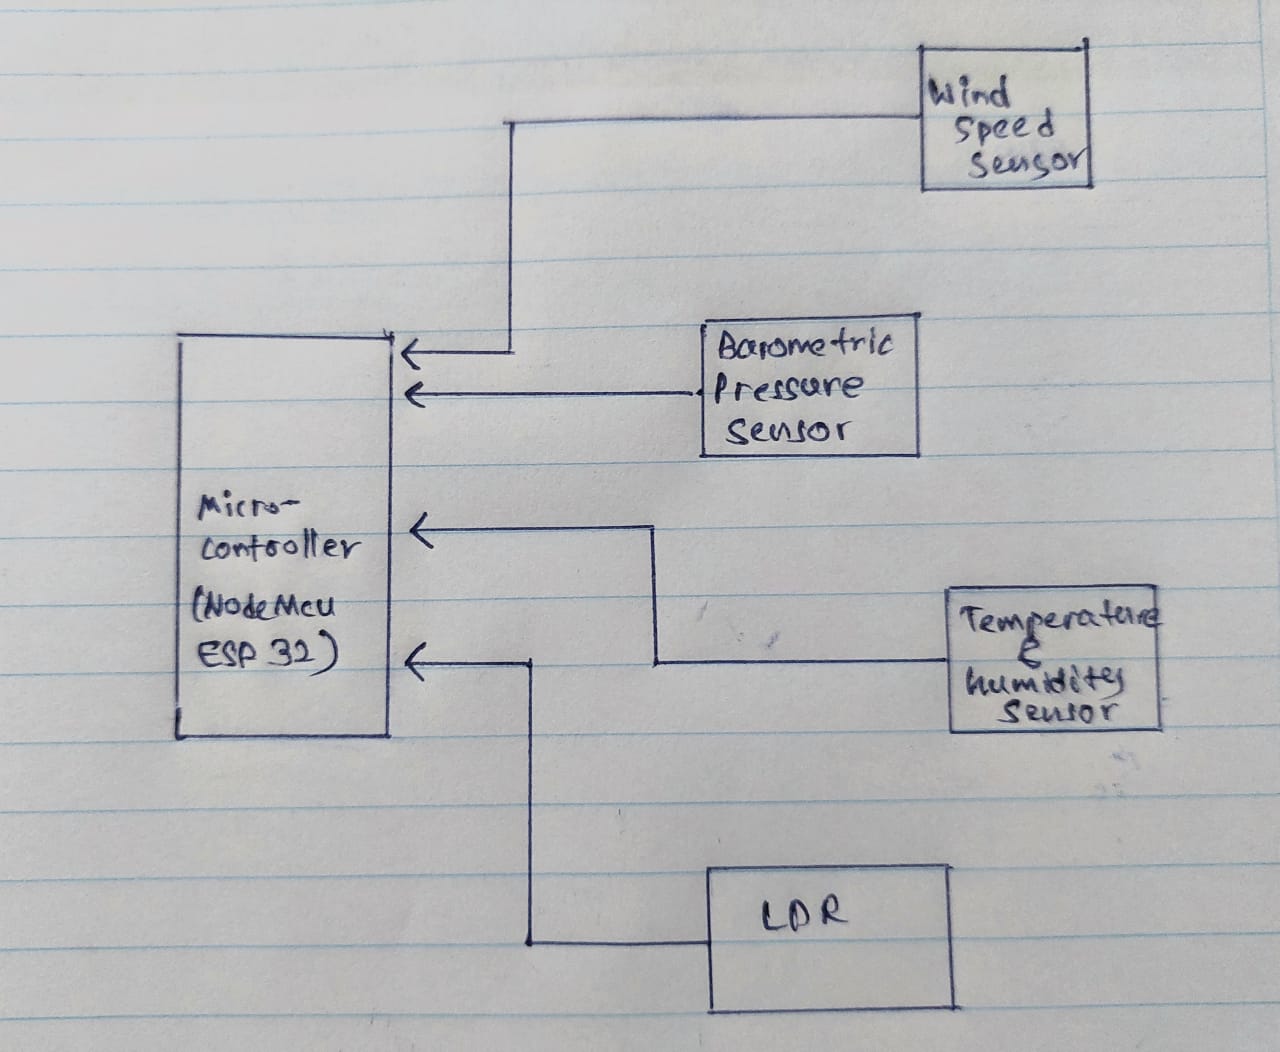 Wind
Speed
Sensor
Barometric
Pressure
Sensor
Micro-
controller
(NodeMcu
ESP 32)
Temperature
&
humidity
Sensor
LDR